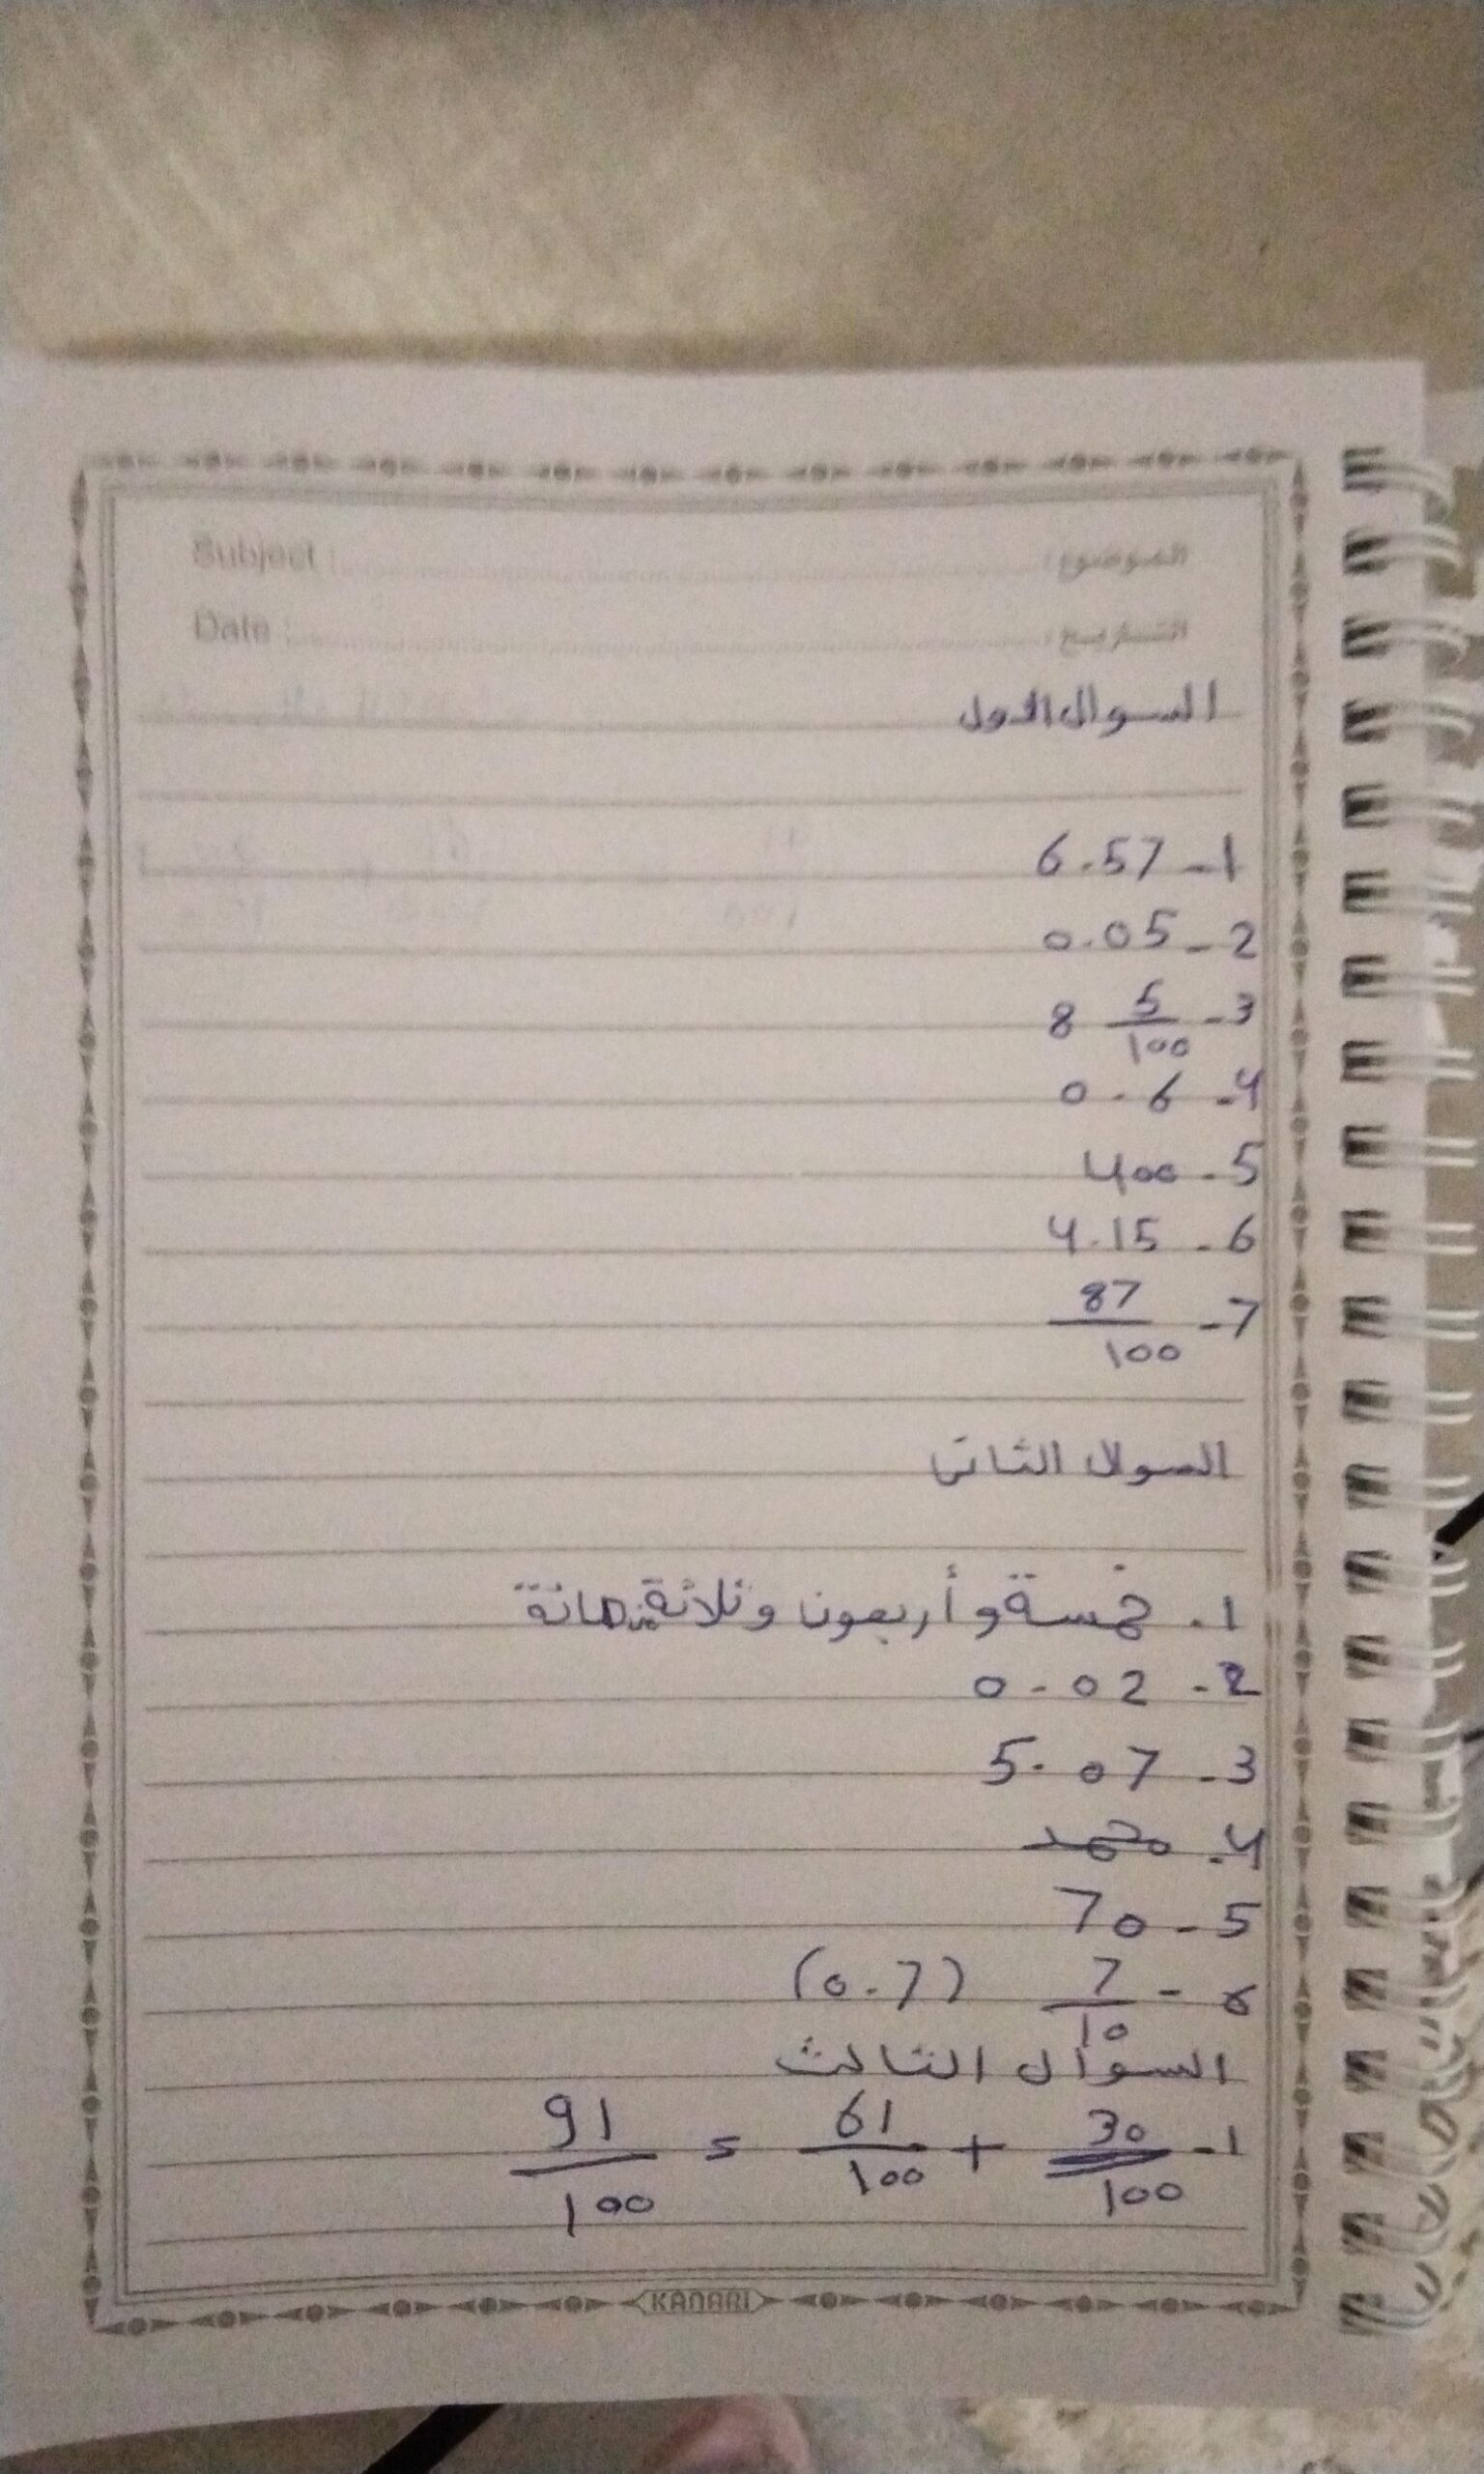 Subject : الموضوع :
Date : التاريخ :
السوال الاول
1- 6.57
2- 0.05
3- 8 5/100
4- 0.6
5- 400
6- 4.15
7- 87/100
السوال الثانى
1. خمسة وأربعون وثلاثة
2- 0.02
3- 5.07
4- محمد
5- 70
6- 7/10 (0.7)
السوال الثالث
1- 30/100 + 61/100 = 91/100
KANARI